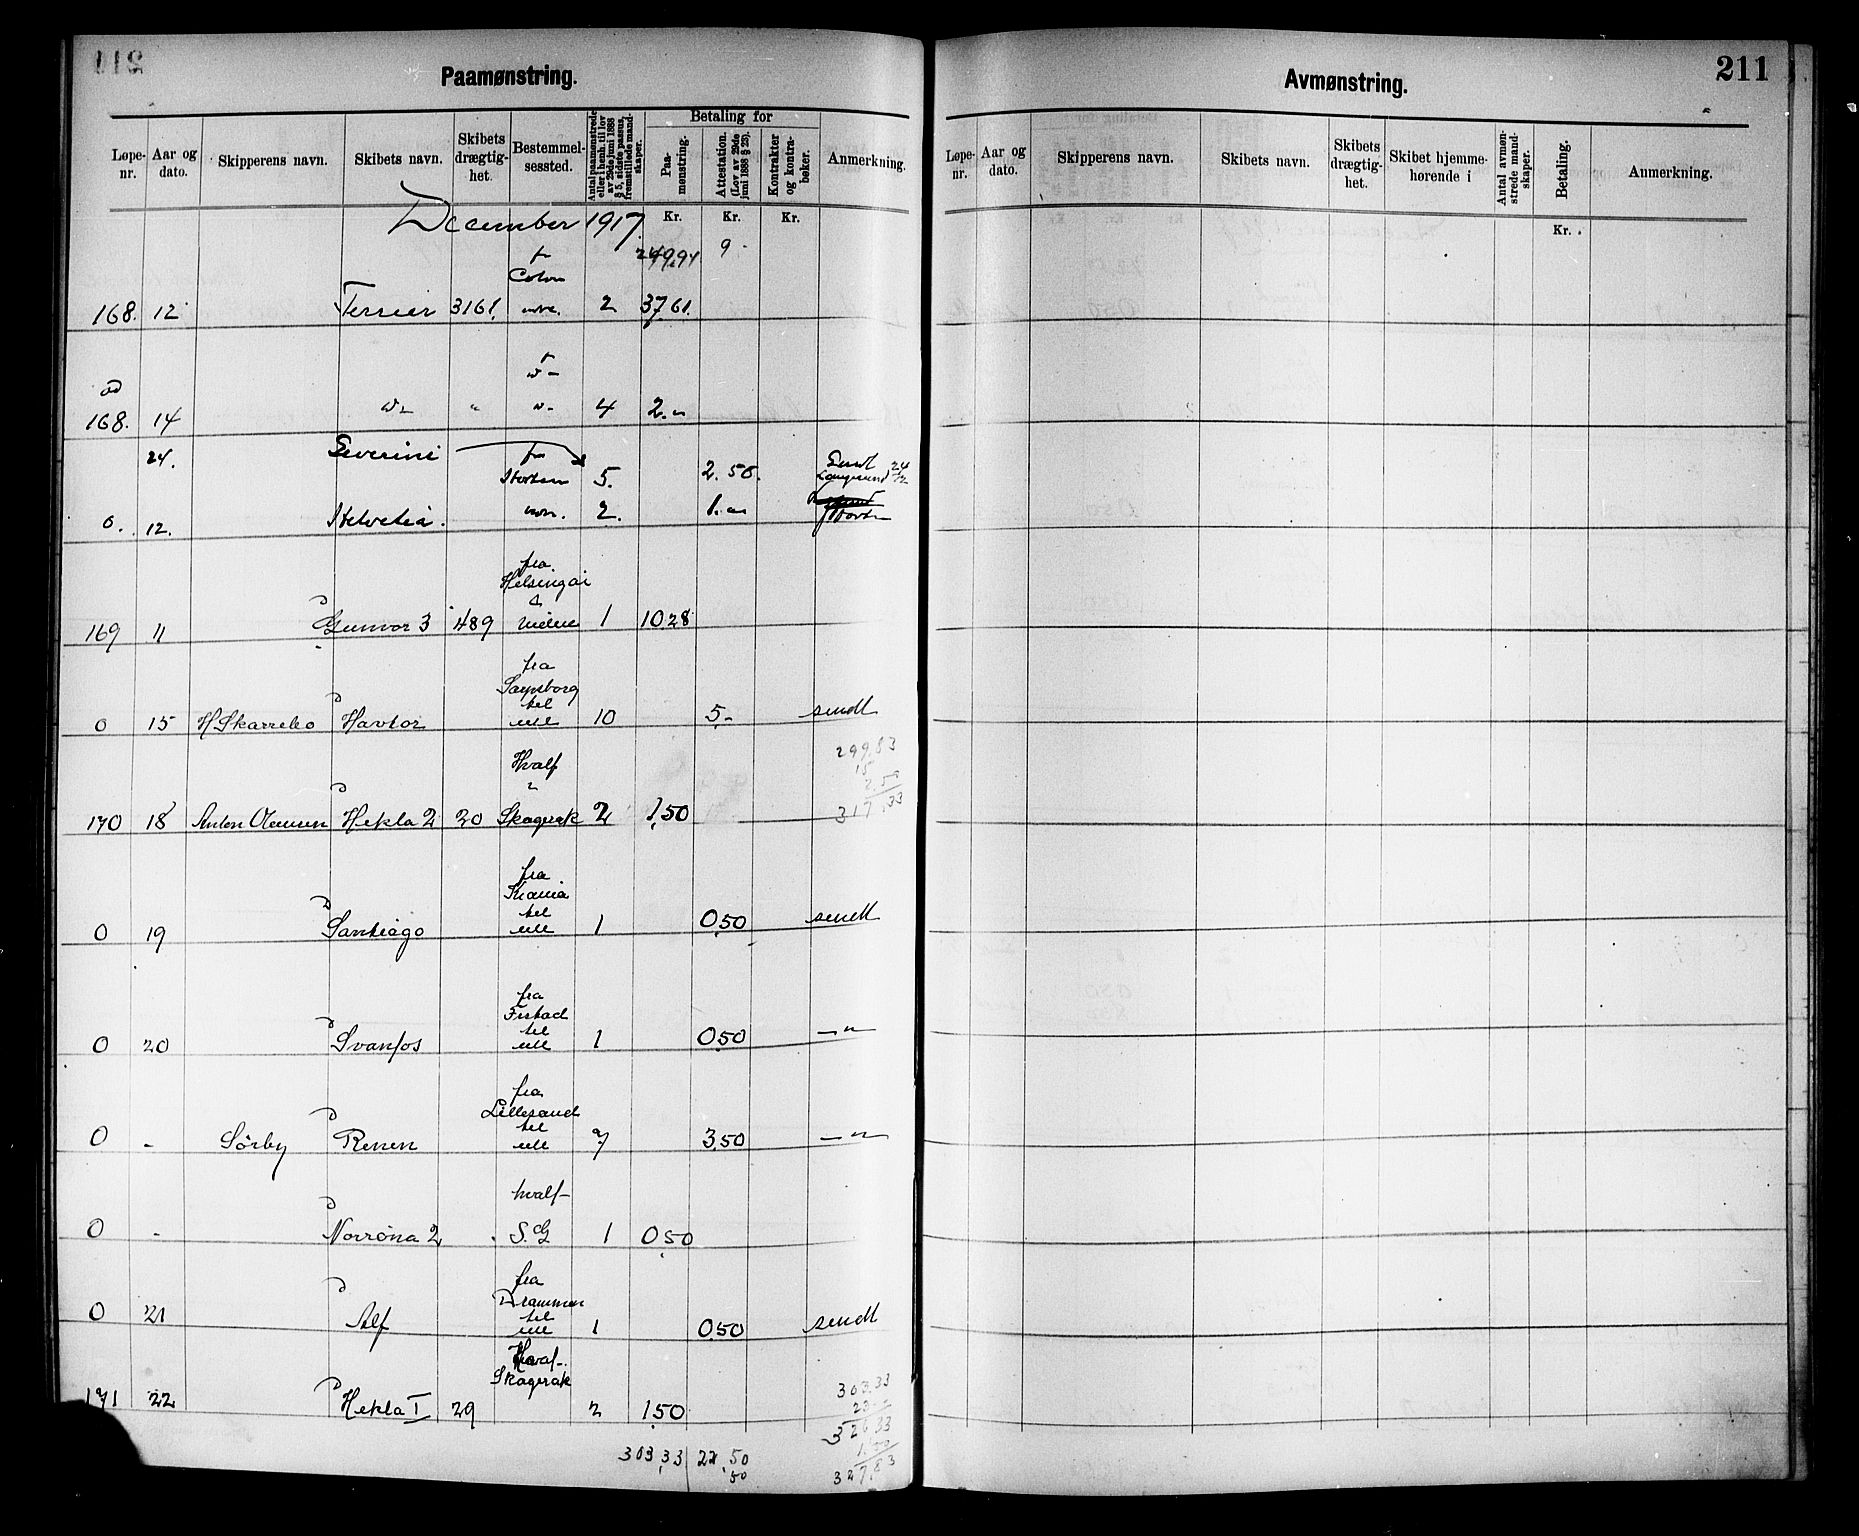 211
Paamønstring.
Løpe-nr.
Aar og dato.
Skipperens navn.
Skibets navn.
Skibets drægtig-het.
Bestemmel-sessted.
Antal paamønstrede eller i henh. til lov av 29de juni 1888 § 5, sidste passus, fremstillede mand-skaper.
Betaling for
Paa-mønstring.
Attestation. (Lov av 29de juni 1888 § 23).
Kontrakter og kontra-bøker.
Anmerkning.
December 1917.
Kr. Kr. Kr.
249,94 9 -
fr Colon
168. 12 Terrier 3161. 2 37,61.
168. 14 " 4 2.
24. Severini fra Horten 5. 2.50. Sendt Langesund 24/12
0. 12. Helvetia. 2. 1.
fra Helsingør
169 11 Gunvor 3 489 1 10,28
fra Sarpsborg til
0 15 H Skarrebo Havtor utl 10 5,- sendt
Hvalf
299,83
15
2,50
317,33
170 18 Anton Olaussen Hekla 2 20 Skagerak 2 1,50
fra Krania til
0 19 Santiago utl 1 0,50 sendt
fra Frstad til
0 20 Svanfos utl 1 0,50 — " —
fra Lillesand til
0 - Sörby Renen utl 7 3,50 — " —
hvalf-
0 - Norröna 2 S.G 1 0,50
fra Drammen til
0 21 Alf utl 1 0,50 sendt
Hvalf-Skagerak
171 22 Hekla I 29 2 1,50
303,33
23
326,33
1,50
327,83
303,33 22,50
50
Avmønstring.
211
Løpe-nr.
Aar og dato.
Skipperens navn.
Skibets navn.
Skibets drægtig-het.
Skibet hjemme-hørende i
Antal avmøn-strede mand-skaper.
Betaling.
Anmerkning.
Kr.